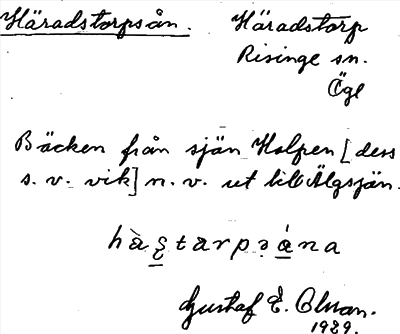 Häradstorpsån. Häradstorp
Risinge sn.
Ögl
Bäcken från sjön Holpen [dess
s. v. vik] n. v. ut till Älgsjön.
Gustaf E. Olson.
1929.